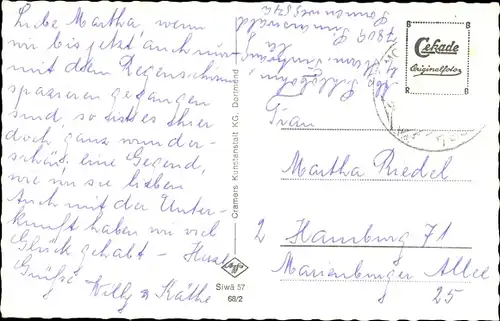 Liebe Martha, wenn
wir bis jetzt auch nur
mit dem Regenschirm
spazieren gegangen
sind, so ist es hier
doch ganz wunder-
schön, eine Gegend,
wie wir sie lieben
Auch mit der Unter-
kunft haben wir viel
Glück gehabt - Herzl.
Grüße Willy & Käthe
Cramers Kunstanstalt KG, Dortmund
Agfa
Siwä 57
68/2
Cekade
Originalfotos
Frau
Martha Riedel
2 Hamburg 71
Marienburger Allee
25